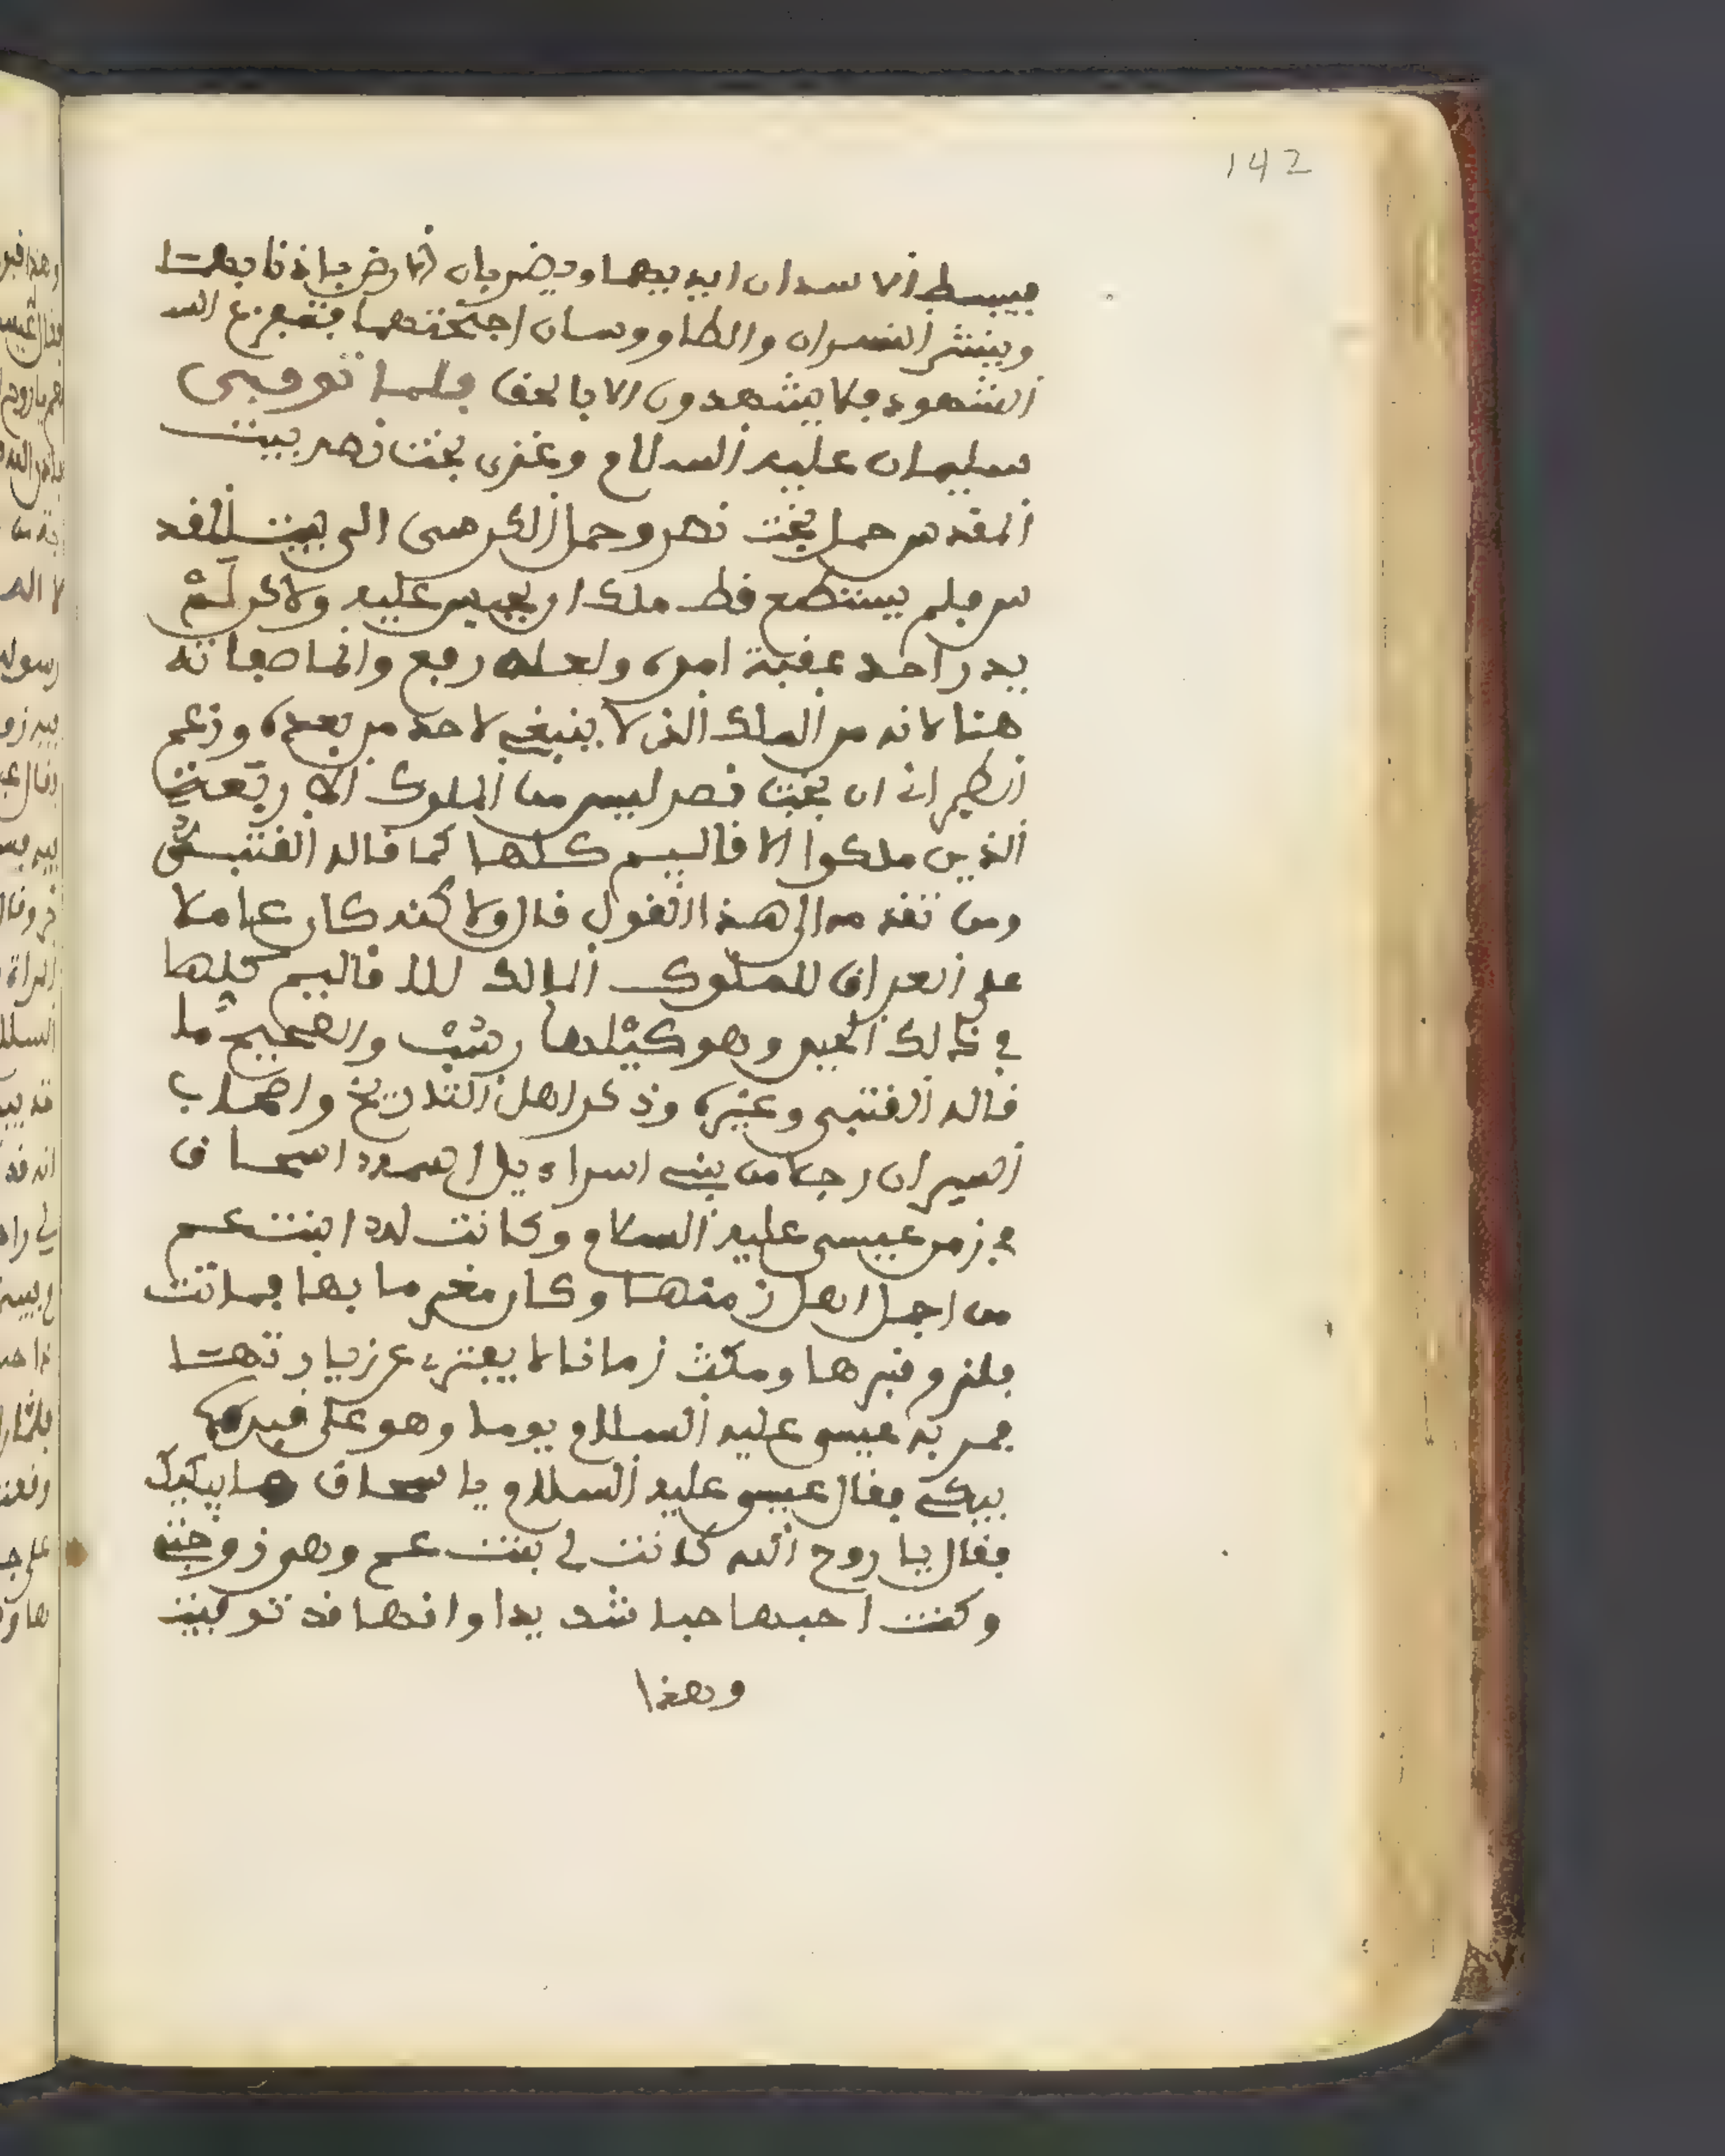 142
فيبسط الاسدان ايديهما ويضربان الارض باذنابهما
وينشر النسران والطاووسان اجنحتهما فتفزع الشـ
الشهود فلا يشهدون الا بالحق فلما توفى
سليمان عليه السلام وغزى بخت نصر بيت
المقدس حمل بخت نصر وحمل الكرسى الى بيت المقد
س فلم يستطع قط ملك ان يجلس عليه ولاكن لم
يدر احد عقبة امره ولعله رفع وانما صفاته
هنا لانه من الملك الذى لا ينبغى لاحد من بعده وزعم
الطبرانى ان بخت نصر ليس من الملوك الاربعة
الذين ملكوا الاقاليم كلها كما قاله القتبى
ومن تقدمه الى هذا القول قال ولاكنه كان عاملا
على العراق للملوك المالك للاقاليم كلها
فى ذالك الحين وهو كيلهارشب والصحيح ما
قاله القتبى وغيره وذكر اهل التاريخ واصحاب
السير ان رجلا من بنى اسراءيل اسمه اسحاق
فى زمن عيسى عليه السلام وكانت له ابنت عم
من اجمل اهل زمنها وكان مغرما بها فماتت
فلزم قبرها ومكث زمانا لا يفتر عن زيارتها
فمر به عيسى عليه السلام يوما وهو على قبرها
يبكى فقال عيسى عليه السلام يا اسحاق ما يبكيك
فقال يا روح الله كانت لى بنت عم وهى زوجتى
وكنت احبها حبا شديدا وانها قد توفيت
وهذا